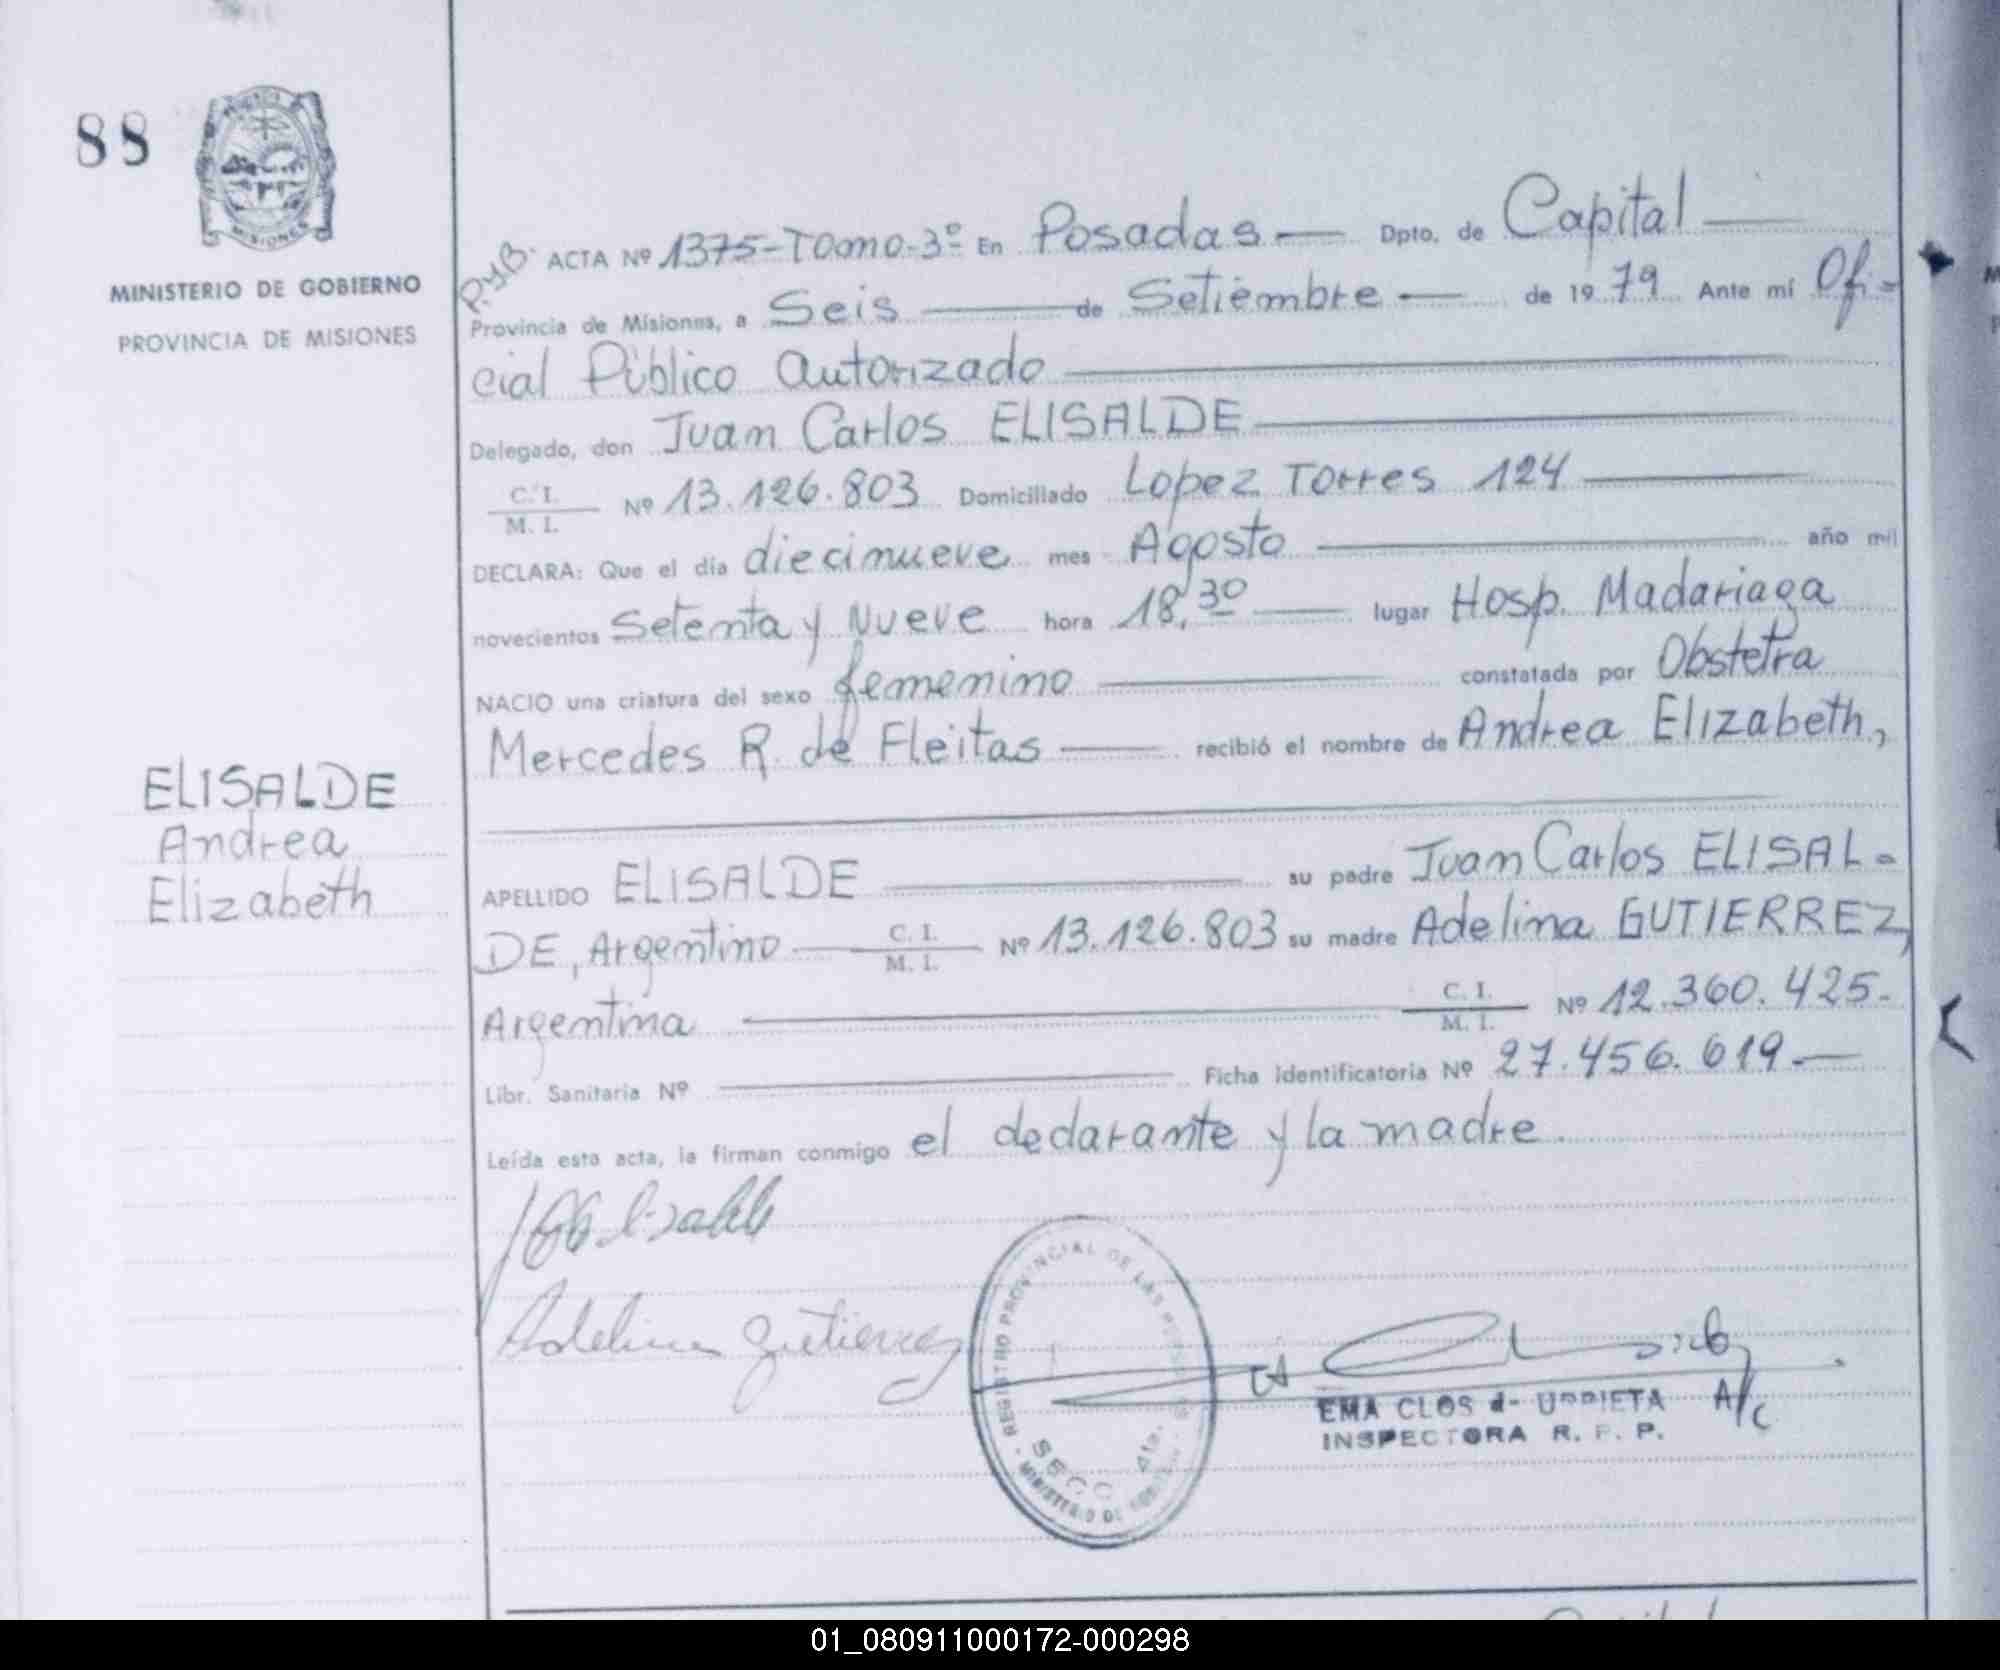 88
MISIONES
MINISTERIO DE GOBIERNO
PROVINCIA DE MISIONES
ELISALDE
Andrea
Elizabeth
P.y B. ACTA Nº 1375-Tomo-3º En Posadas — Dpto. de Capital —
Provincia de Misiones, a Seis — de Setiembre — de 1979 Ante mí Ofi-
cial Público Autorizado —
Delegado, don Juan Carlos ELISALDE —
C. I.
M. I.
Nº 13.126.803 Domiciliado Lopez Torres 124 —
DECLARA: Que el día diecinueve mes Agosto — año mil
novecientos Setenta y Nueve hora 18,30 — lugar Hosp. Madariaga
NACIO una criatura del sexo femenino — constatada por Obstetra
Mercedes R. de Fleitas — recibió el nombre de Andrea Elizabeth,
APELLIDO ELISALDE — su padre Juan Carlos ELISAL-
DE, Argentino — C. I. M. I. Nº 13.126.803 su madre Adelina GUTIERREZ,
Argentina — C. I. M. I. Nº 12.360.425.-
Libr. Sanitaria Nº — Ficha Identificatoria Nº 27.456.619.—
Leída esta acta, la firman conmigo el declarante y la madre.
Adelina Gutierrez
REGISTRO PROVINCIAL DE LAS
MINISTERIO DE
SECC 4ta.
EMA CLOS d- URRIETA A/c
INSPECTORA R. P. P.
01_080911000172-000298